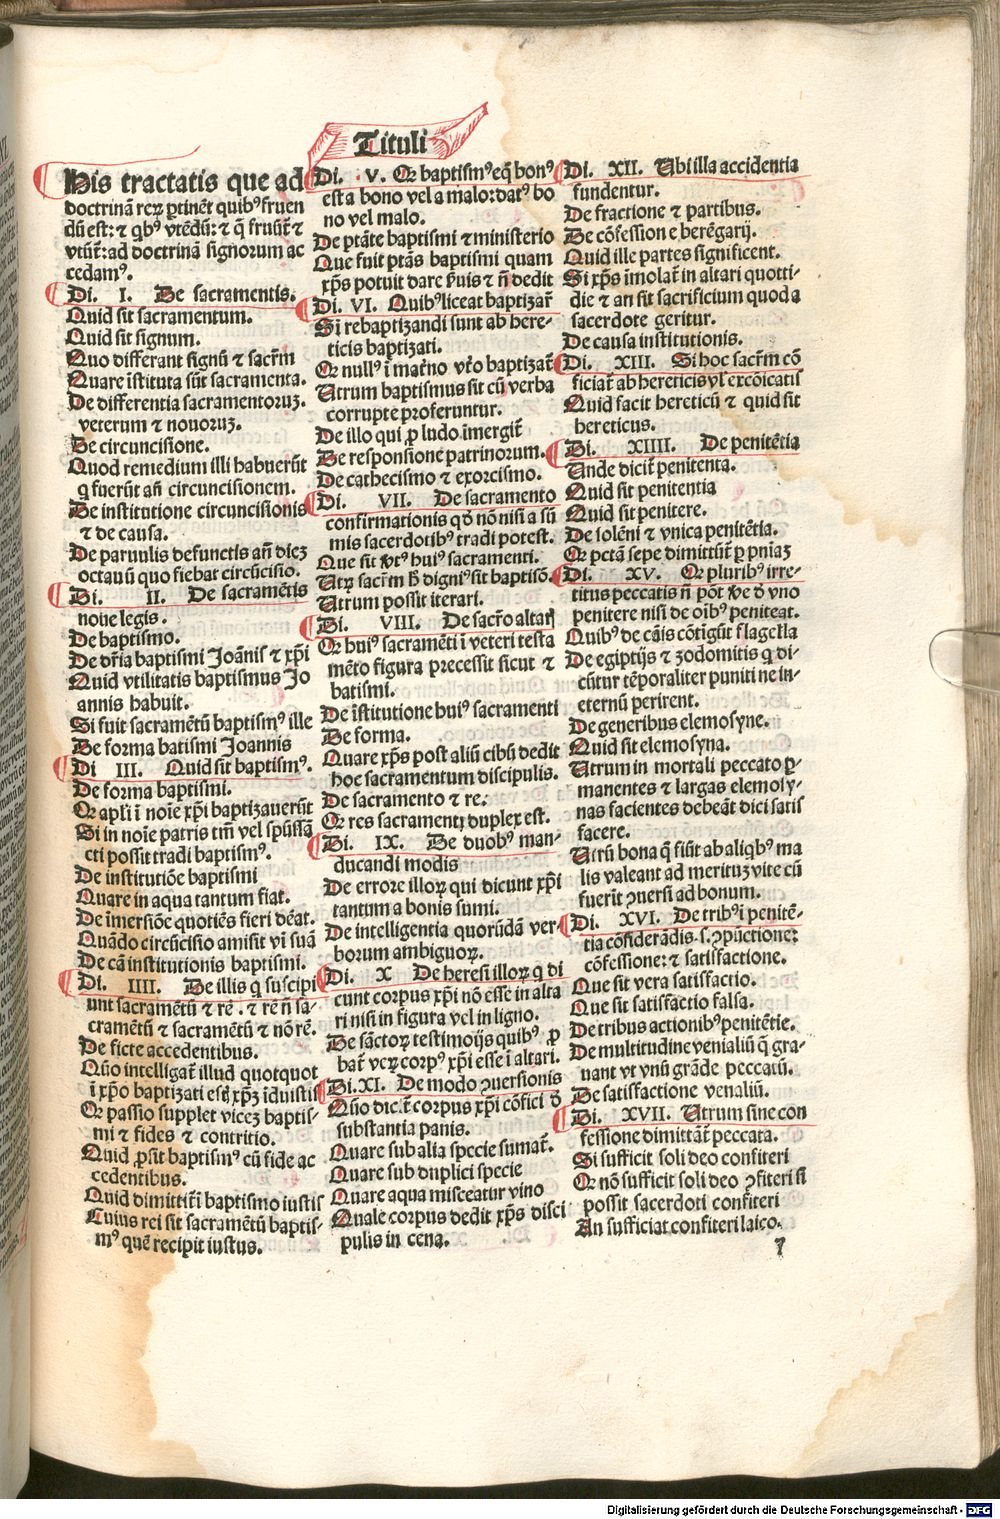 Tituli
His tractatis que ad
doctrinã reꝝ ꝑtinẽt quibꝰ fruen
dũ est: ⁊ qͥbꝰ vtẽdũ: ⁊ q̃ fruũt̃ ⁊
vtũt̃: ad doctrinã signorum ac
cedamꝰ.
Di. I. De sacramentis.
Quid sit sacramentum.
Quid sit signum.
Quo differant signũ ⁊ sacr̃m
Quare istituta sũt sacramenta.
De differentia sacramentoruꝫ.
veterum ⁊ nouoruꝫ.
De circuncisione.
Quod remedium illi habuerũt
q fuerũt añ circuncisionem.
De institutione circuncisionis
⁊ de causa.
De paruulis defunctis añ dieꝫ
octauũ quo fiebat circũcisio.
Di. II. De sacramẽtis
noue legis.
De baptismo.
De dr̃ia baptismi Joãnis ⁊ xp̃i
Quid vtilitatis baptismus Jo
annis habuit.
Si fuit sacramẽtũ baptismꝰ ille
De forma batismi Joannis
Di III. Quid sit baptismꝰ.
De forma baptismi.
Qꝛ apl̃i ĩ noĩe xp̃i baptizauerũt
Si in noĩe patris tm̃ vel spũssã
cti possit tradi baptismꝰ.
De institutiõe baptismi
Quare in aqua tantum fiat.
De ĩmersiõe quotiẽs fieri dẽat.
Quãdo circũcisio amisit vĩ suã
De cã institutionis baptismi.
Di. IIII. De illis q suscipi
unt sacramẽtũ ⁊ rẽ. ⁊ rẽ ñ sa-
cramẽtũ ⁊ sacramẽtũ ⁊ nõ rẽ.
De ficte accedentibus.
Qũo intelligat̃ illud quotquot
ĩ xp̃o baptizati estꝭ xp̃ꝫ iduistis
Qꝛ passio supplet viceꝫ baptis-
mi ⁊ fides ⁊ contritio.
Quid ꝓsit baptismꝰ cũ fide ac
cedentibus.
Quid dimittit̃ baptismo iustis
Cuius rei sit sacramẽtũ baptis-
mꝰ quẽ recipit iustus.
Di. V. Qꝛ baptismꝰ eq̃ bonꝰ
est a bono vel a malo: datꝰ bo
no vel malo.
De ptãte baptismi ⁊ ministerio
Que fuit ptãs baptismi quam
xp̃s potuit dare ẜuis ⁊ ñ dedit
Di. VI. Quibꝰ liceat baptizar̃
Si rebaptizandi sunt ab here-
ticis baptizati.
Qꝛ nullꝰ ĩ mat̃no vt̃o baptizat̃
Utrum baptismus sit cũ verba
corrupte proferuntur.
De illo qui ꝓ ludo ĩmergit̃
De responsione patrinorum.
De cathecismo ⁊ exorcismo.
Di. VII. De sacramento
confirmationis qđ nõ nisi a sũ
mis sacerdotibꝰ tradi potest.
Que sit v̓tꝰ huiꝰ sacramenti.
Utꝝ sacr̃m h̓ digniꝰ sit baptism̃.
Utrum possit iterari.
Di. VIII. De sacr̃o altarꝭ
Qꝛ huiꝰ sacramẽti ĩ veteri testa
mẽto figura precessit sicut ⁊
batismi.
De ĩstitutione huiꝰ sacramenti
De forma.
Quare xp̃s post aliũ cibũ dedit
hoc sacramentum discipulis.
De sacramento ⁊ re.
Qꝛ res sacramentꝭ duplex est.
Di. IX. De duobꝰ man-
ducandi modis
De errore illoꝝ qui dicunt xp̃i
tantum a bonis sumi.
De intelligentia quorũdã ver-
borum ambiguoꝝ.
Di. X De heresi illoꝝ q di
cunt corpus xp̃i nõ esse in alta
ri nisi in figura vel in ligno.
De sãctoꝝ testimoijs quibꝰ ꝓ
bat̃ veꝝ corpꝰ xp̃i esse ĩ altari.
Di. XI. De modo ꝯuersionis
Qũo dic̃t corpus xp̃i cõfici đ
substantia panis.
Quare sub alia specie sumat̃.
Quare sub duplici specie
Quare aqua misceatur vino
Quale corpus dedit xp̃s disci
pulis in cena.
Di. XII. Ubi illa accidentia
fundentur.
De fractione ⁊ partibus.
De cõfessione berẽgarij.
Quid ille partes significent.
Si xp̃s ĩmolat̃ in altari quotti-
die ⁊ an sit sacrificium quod a
sacerdote geritur.
De causa institutionis.
Di. XIII. Si hoc sacr̃m cõ
ficiat̃ ab hereticis vl̓ excõicatis
Quid facit hereticũ ⁊ quid sit
hereticus.
Di. XIIII. De penitẽtia
Unde dicit̃ penitenta.
Quid sit penitentia
Quid sit penitere.
De solẽni ⁊ vnica penitẽtia.
Qꝛ pctã sepe dimittũt̃ ꝑ pniãꝫ
Di. XV. Qꝛ pluribꝰ irre-
titus peccatis ñ põt v̓e đ vno
penitere nisi de oĩbꝰ peniteat.
Quibꝰ de cãis cõtigũt flagella
De egiptijs ⁊ zodomitis q di-
cũtur tẽporaliter puniti ne in-
eternũ perirent.
De generibus elemosyne.
Quid sit elemosyna.
Utrum in mortali peccato ꝑ-
manentes ⁊ largas elemosy-
nas facientes debeãt dici satis
facere.
Utrũ bona q̃ fiũt ab aliqͥbꝰ ma
lis valeant ad merituꝫ vite cũ
fuerit ꝯuersi ad bonum.
Di. XVI. De tribꝰ ĩ penitẽ-
tia cõsiderãdis. s. ꝯpũctione:
cõfessione: ⁊ satisfactione.
Que sit vera satisfactio.
Que sit satisfactio falsa.
De tribus actionibꝰ penitẽtie.
De multitudine venialiũ q̃ gra-
uant vt vnũ grãde peccatũ.
De satisfactione venaliũ.
Di. XVII. Utrum sine con
fessione dimittãt̃ peccata.
Si sufficit soli deo confiteri
Qꝛ nõ sufficit soli deo ꝯfiteri si
possit sacerdoti confiteri
An sufficiat confiteri laico.
7
Digitalisierung gefördert durch die Deutsche Forschungsgemeinschaft - DFG